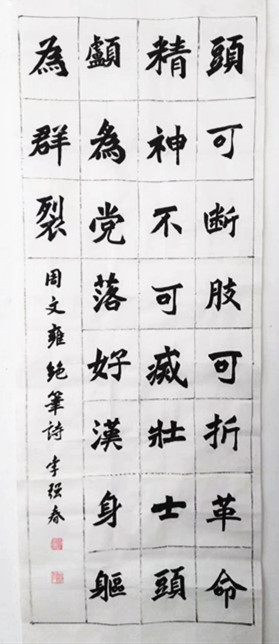 頭可断肢可折革命
精神不可滅壯士頭
顱爲党落好漢身軀
為群裂
周文雍絶筆詩 李强春